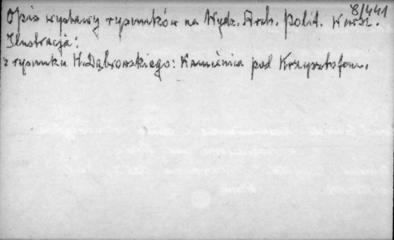 8/441
Opis wystawy rysunków na Wydz. Arch. Polit. Warsz.
Ilustracja:
z rysunku H. Dąbrowskiego: Kamienica pod Krzysztofem.